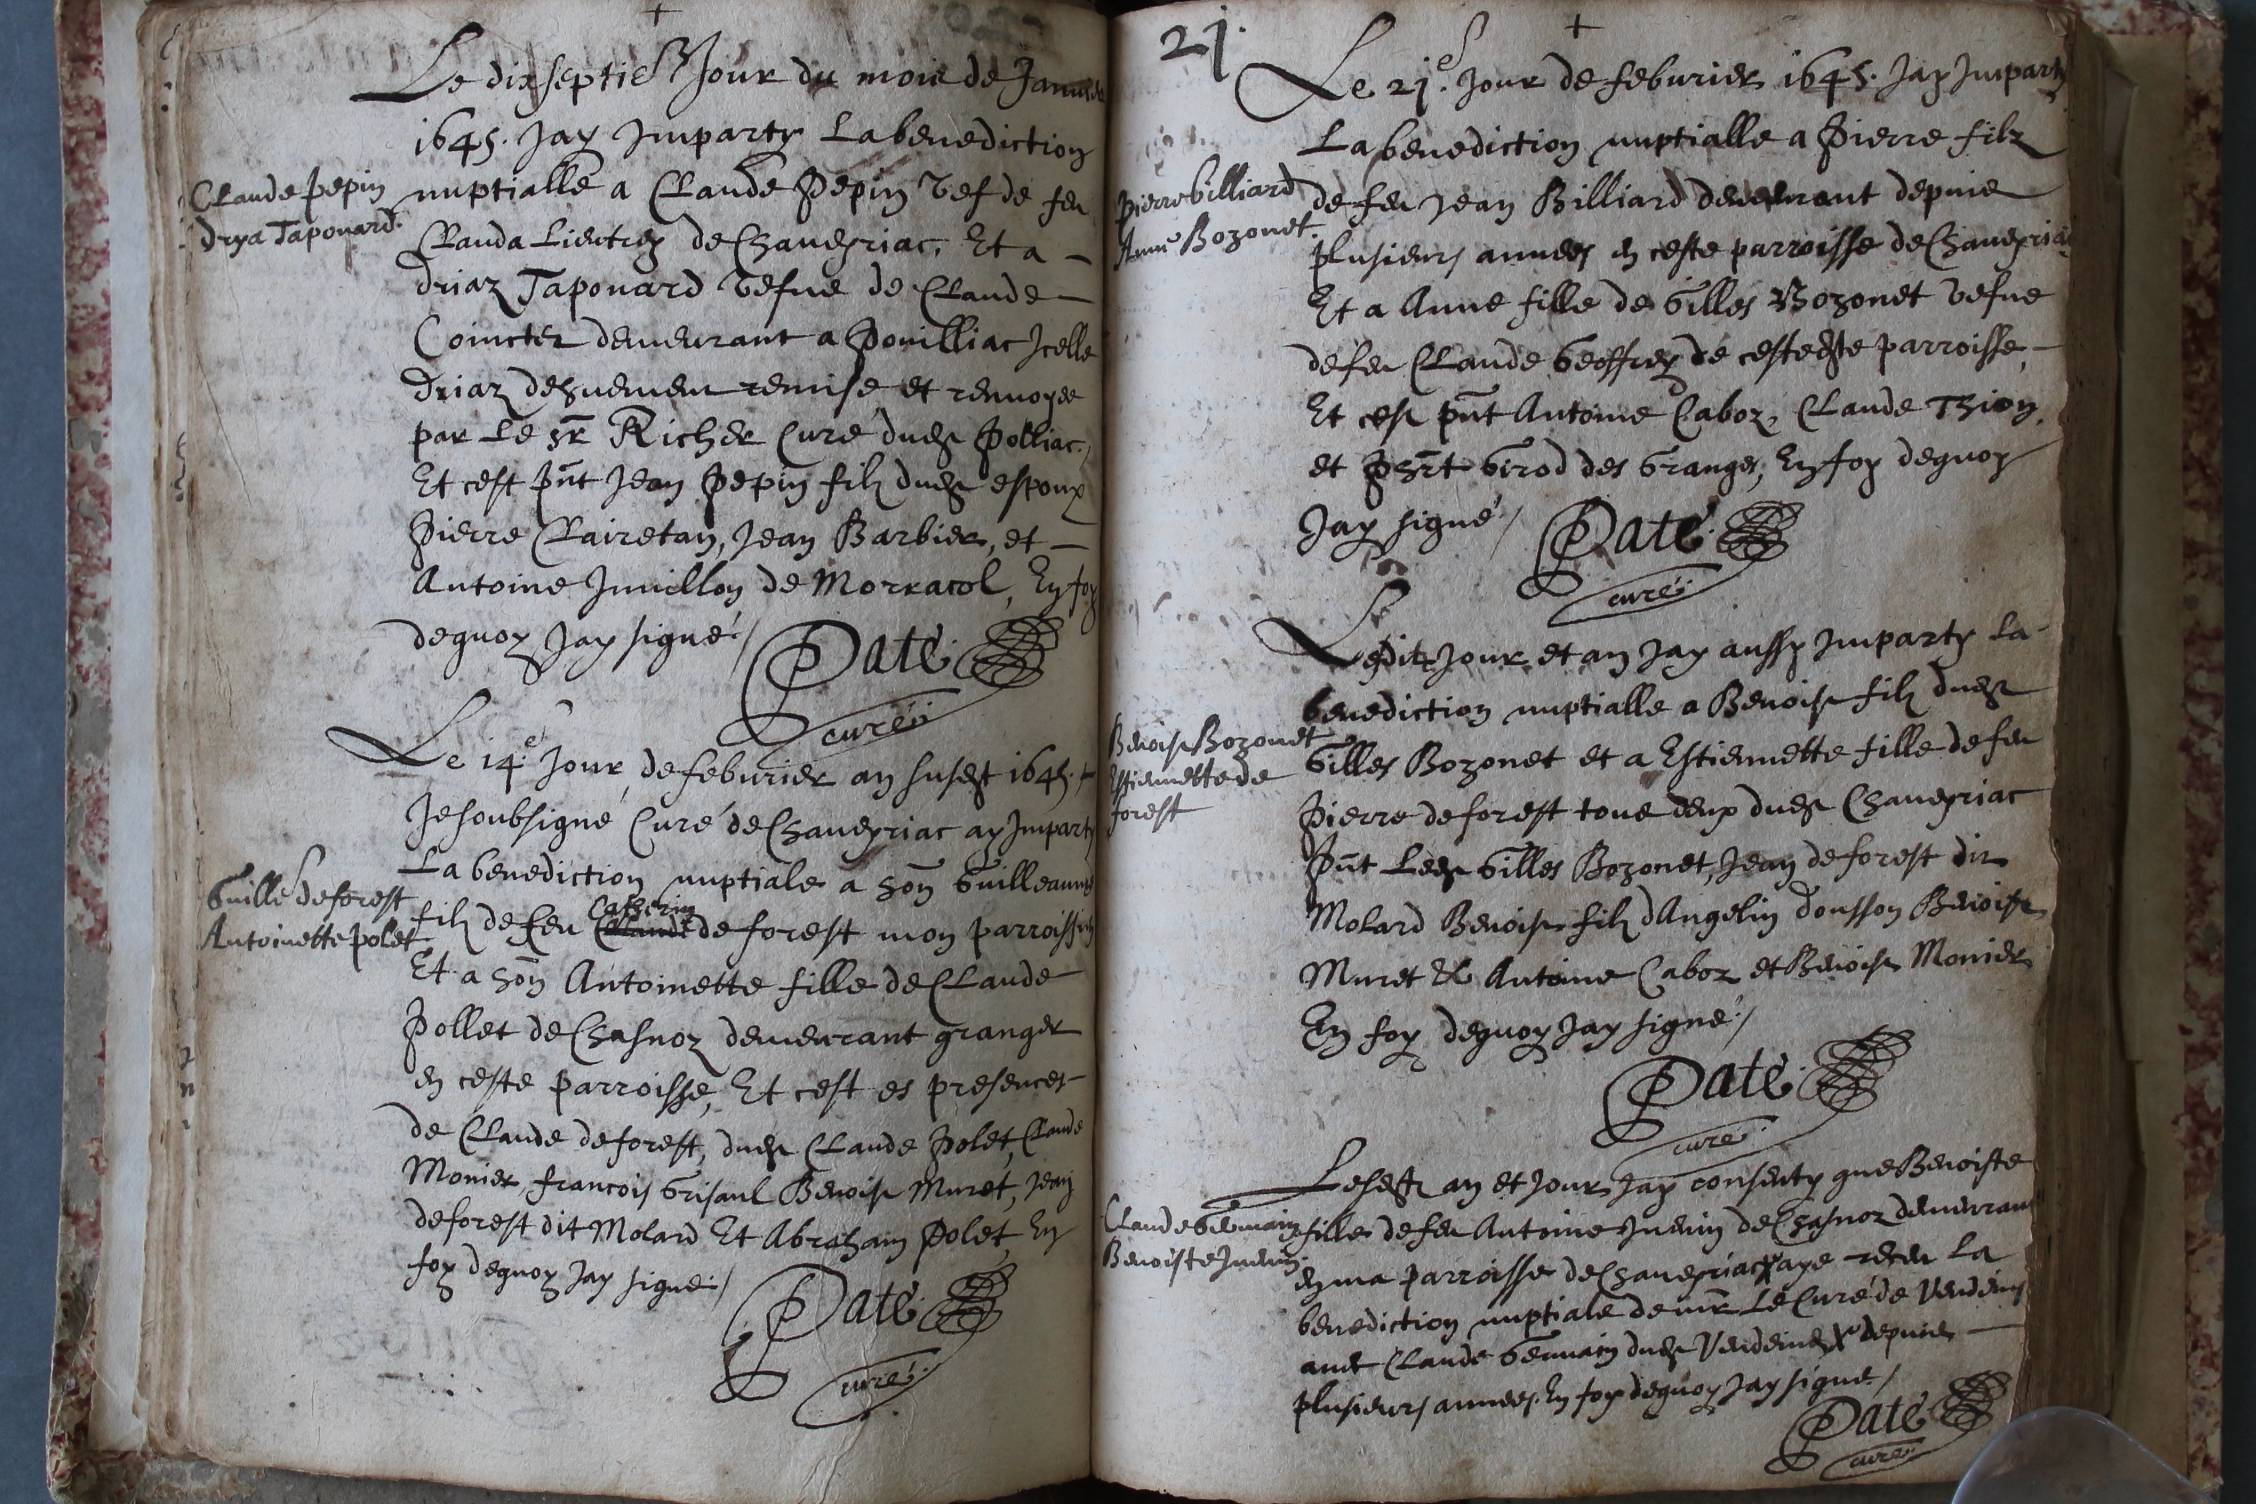 Le dixseptie Jour du mois de Janvier
1645. Jay Imparty La benediction
Claude pepin
drya Taponard.
nuptialle a Claude Pepin vef de feu
Clauda Lientrey de Chaveyriac, Et a
driaz Taponard vefue de Claude
Cointer demeurant a Pouilliac Icelle
Driaz dehuement remise et renuoyee
par Le sr Richer Curé dudt Polliac,
Et cest pnt Jean Pepin filz dudt espoux
Pierre Clairetan, Jean Barbier, et
Antoine Juvillon de Morracol, En foy
dequoy Jay signé /
Daté
curé
Le 14e Jour de feburier an susdt 1645.
Je soubsigné Curé de Chaveyriac ay Imparty
La benediction nuptiale a hon Guilleaume
Guille deforest
Antoinette polet
Catherin
filz de feu Claude deforest mon parroissien
Et a hon Antoinette fille de Claude
Pollet de Chasnoz demeurant granger
en ceste parroisse, Et cest es presences
de Claude deforest, dudt Claude Polet, Claude
Monier, francois Grisaul Benoist Muret, Jean
deforest dit Molard Et Abraham Polet, En
foy dequoy Jay signé /
Daté
curé
21.
Le 21e Jour de feburier 1645. Jay Imparty
La benediction nuptialle a Pierre filz
Pierre billiard
Anne Bozonet.
de feu Jean Billiard demeurant depuis
plusieurs annees en ceste parroisse de Chaveyriac
Et a Anne fille de Gilles Bozonet vefue
de feu Claude Geoffrey de cestedte parroisse
Et cest pnt Antoine Caboz, Claude Thion,
et Phrt Girod des Granges, En foy dequoy
Jay signé /
Daté
curé
Ledit Jour et an Jay aussy Imparty La
benediction nuptialle a Benoist filz dudt
Benoist Bozonet
Estiennette de
forest
Gilles Bozonet et a Estiennette fille de feu
Pierre deforest tous deux dudt Chaveyriac
Pnt Ledt Gilles Bozonet, Jean deforest dit
Molard Benoist filz dAngelin Dousson Benoist
Muret & Antoine Caboz et Benoist Monier
En foy dequoy Jay signé /
Daté
curé
Lesdt an et Jour Jay consenty que Benoiste
Claude Germain
Benoiste Juenin
fille de feu Antoine Juenin de Chasnoz demeurant
en ma parroisse de Chaveyriac aye receu La
benediction nuptiale de mr Le Curé de Vendeins
avec Claude Germain dudt Vendeins depuis
plusieurs annees. En foy dequoy Jay signé /
Daté
curé